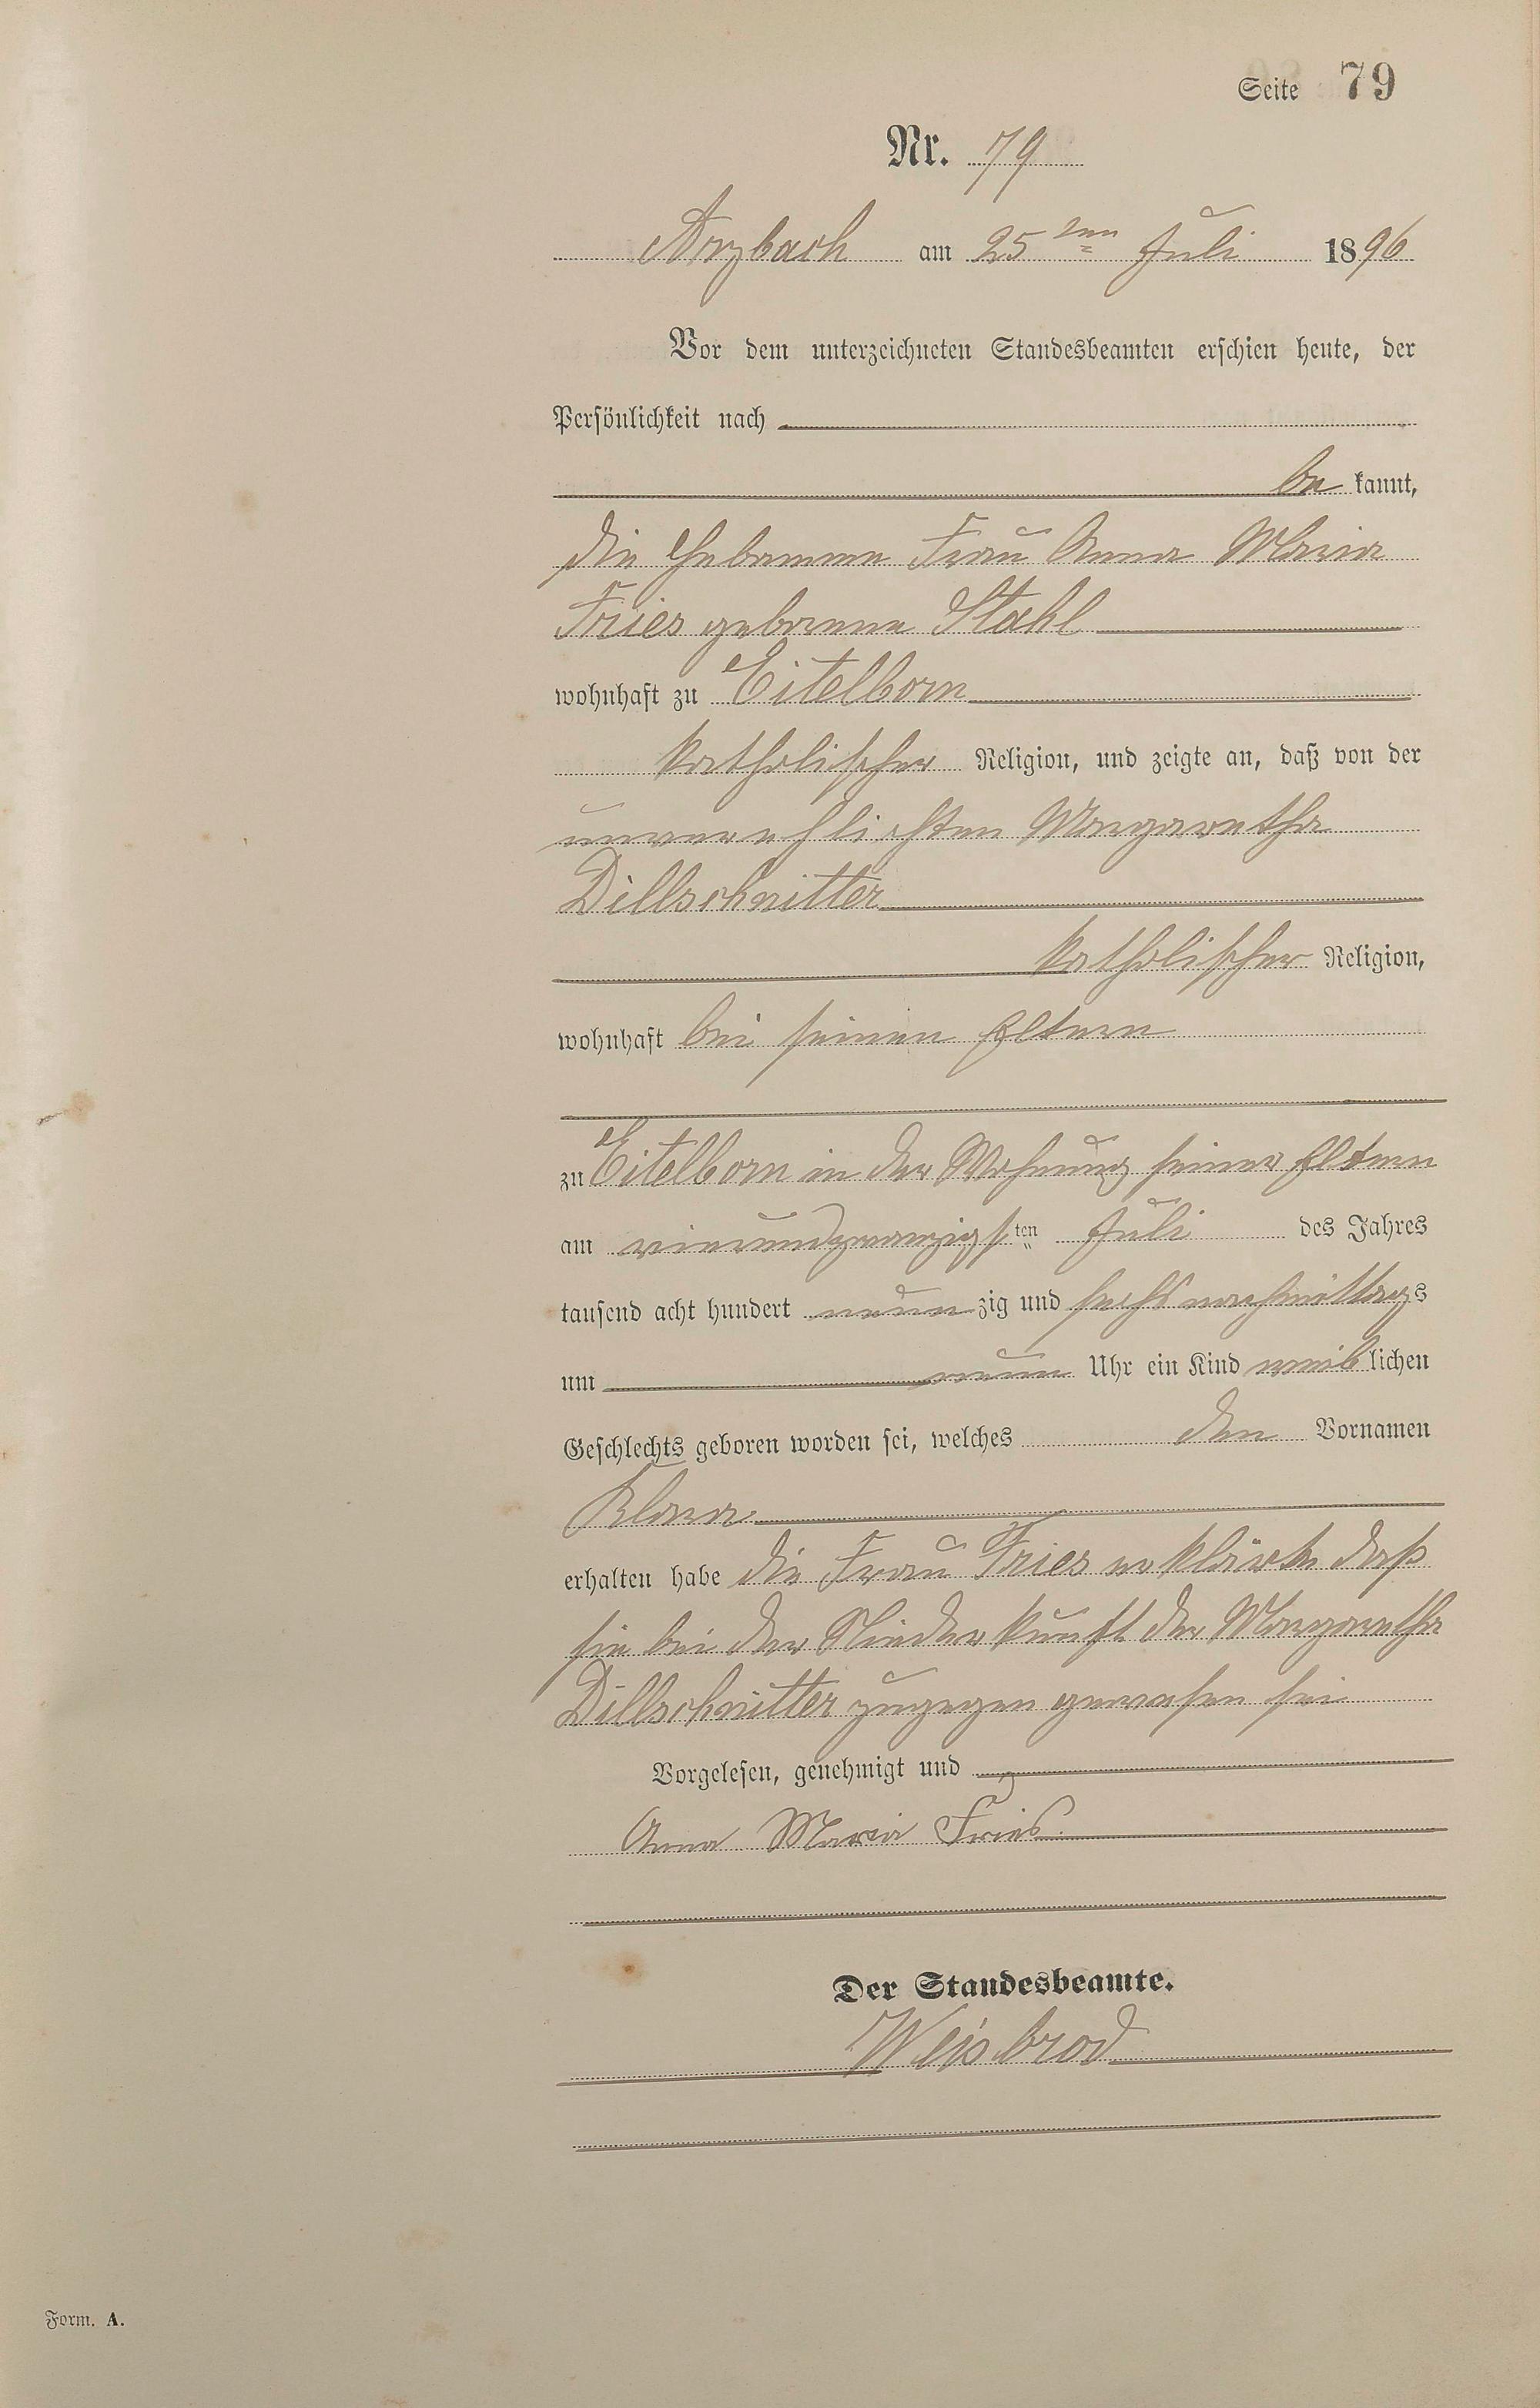 Seite 79
Nr. 79
Arzbach am 25ten Juli 1896
Vor dem unterzeichneten Standesbeamten erschien heute, der
Persönlichkeit nach
be kannt,
die Hebamme Frau Anna Maria
Fries geborene Stahl
wohnhaft zu Eitelborn
katholischer Religion, und zeigte an, daß von der
unverehlichten Margaretha
Dillschnitter
katholischer Religion,
wohnhaft bei seinen Eltern
zu Eitelborn in der Wohnung seiner Eltern
am vierundzwanzigsten Juli des Jahres
tausend acht hundert neunzig und sechs nachmittags
um neun Uhr ein Kind weiblichen
Geschlechts geboren worden sei, welches den Vornamen
Klara
erhalten habe die Frau Fries erklärte daß
sie bei der Niederkunft der Margaretha
Dillschnitter zugegen gewesen sei
Vorgelesen, genehmigt und
Anna Maria Fries
Der Standesbeamte.
Weisbrod
Form. A.